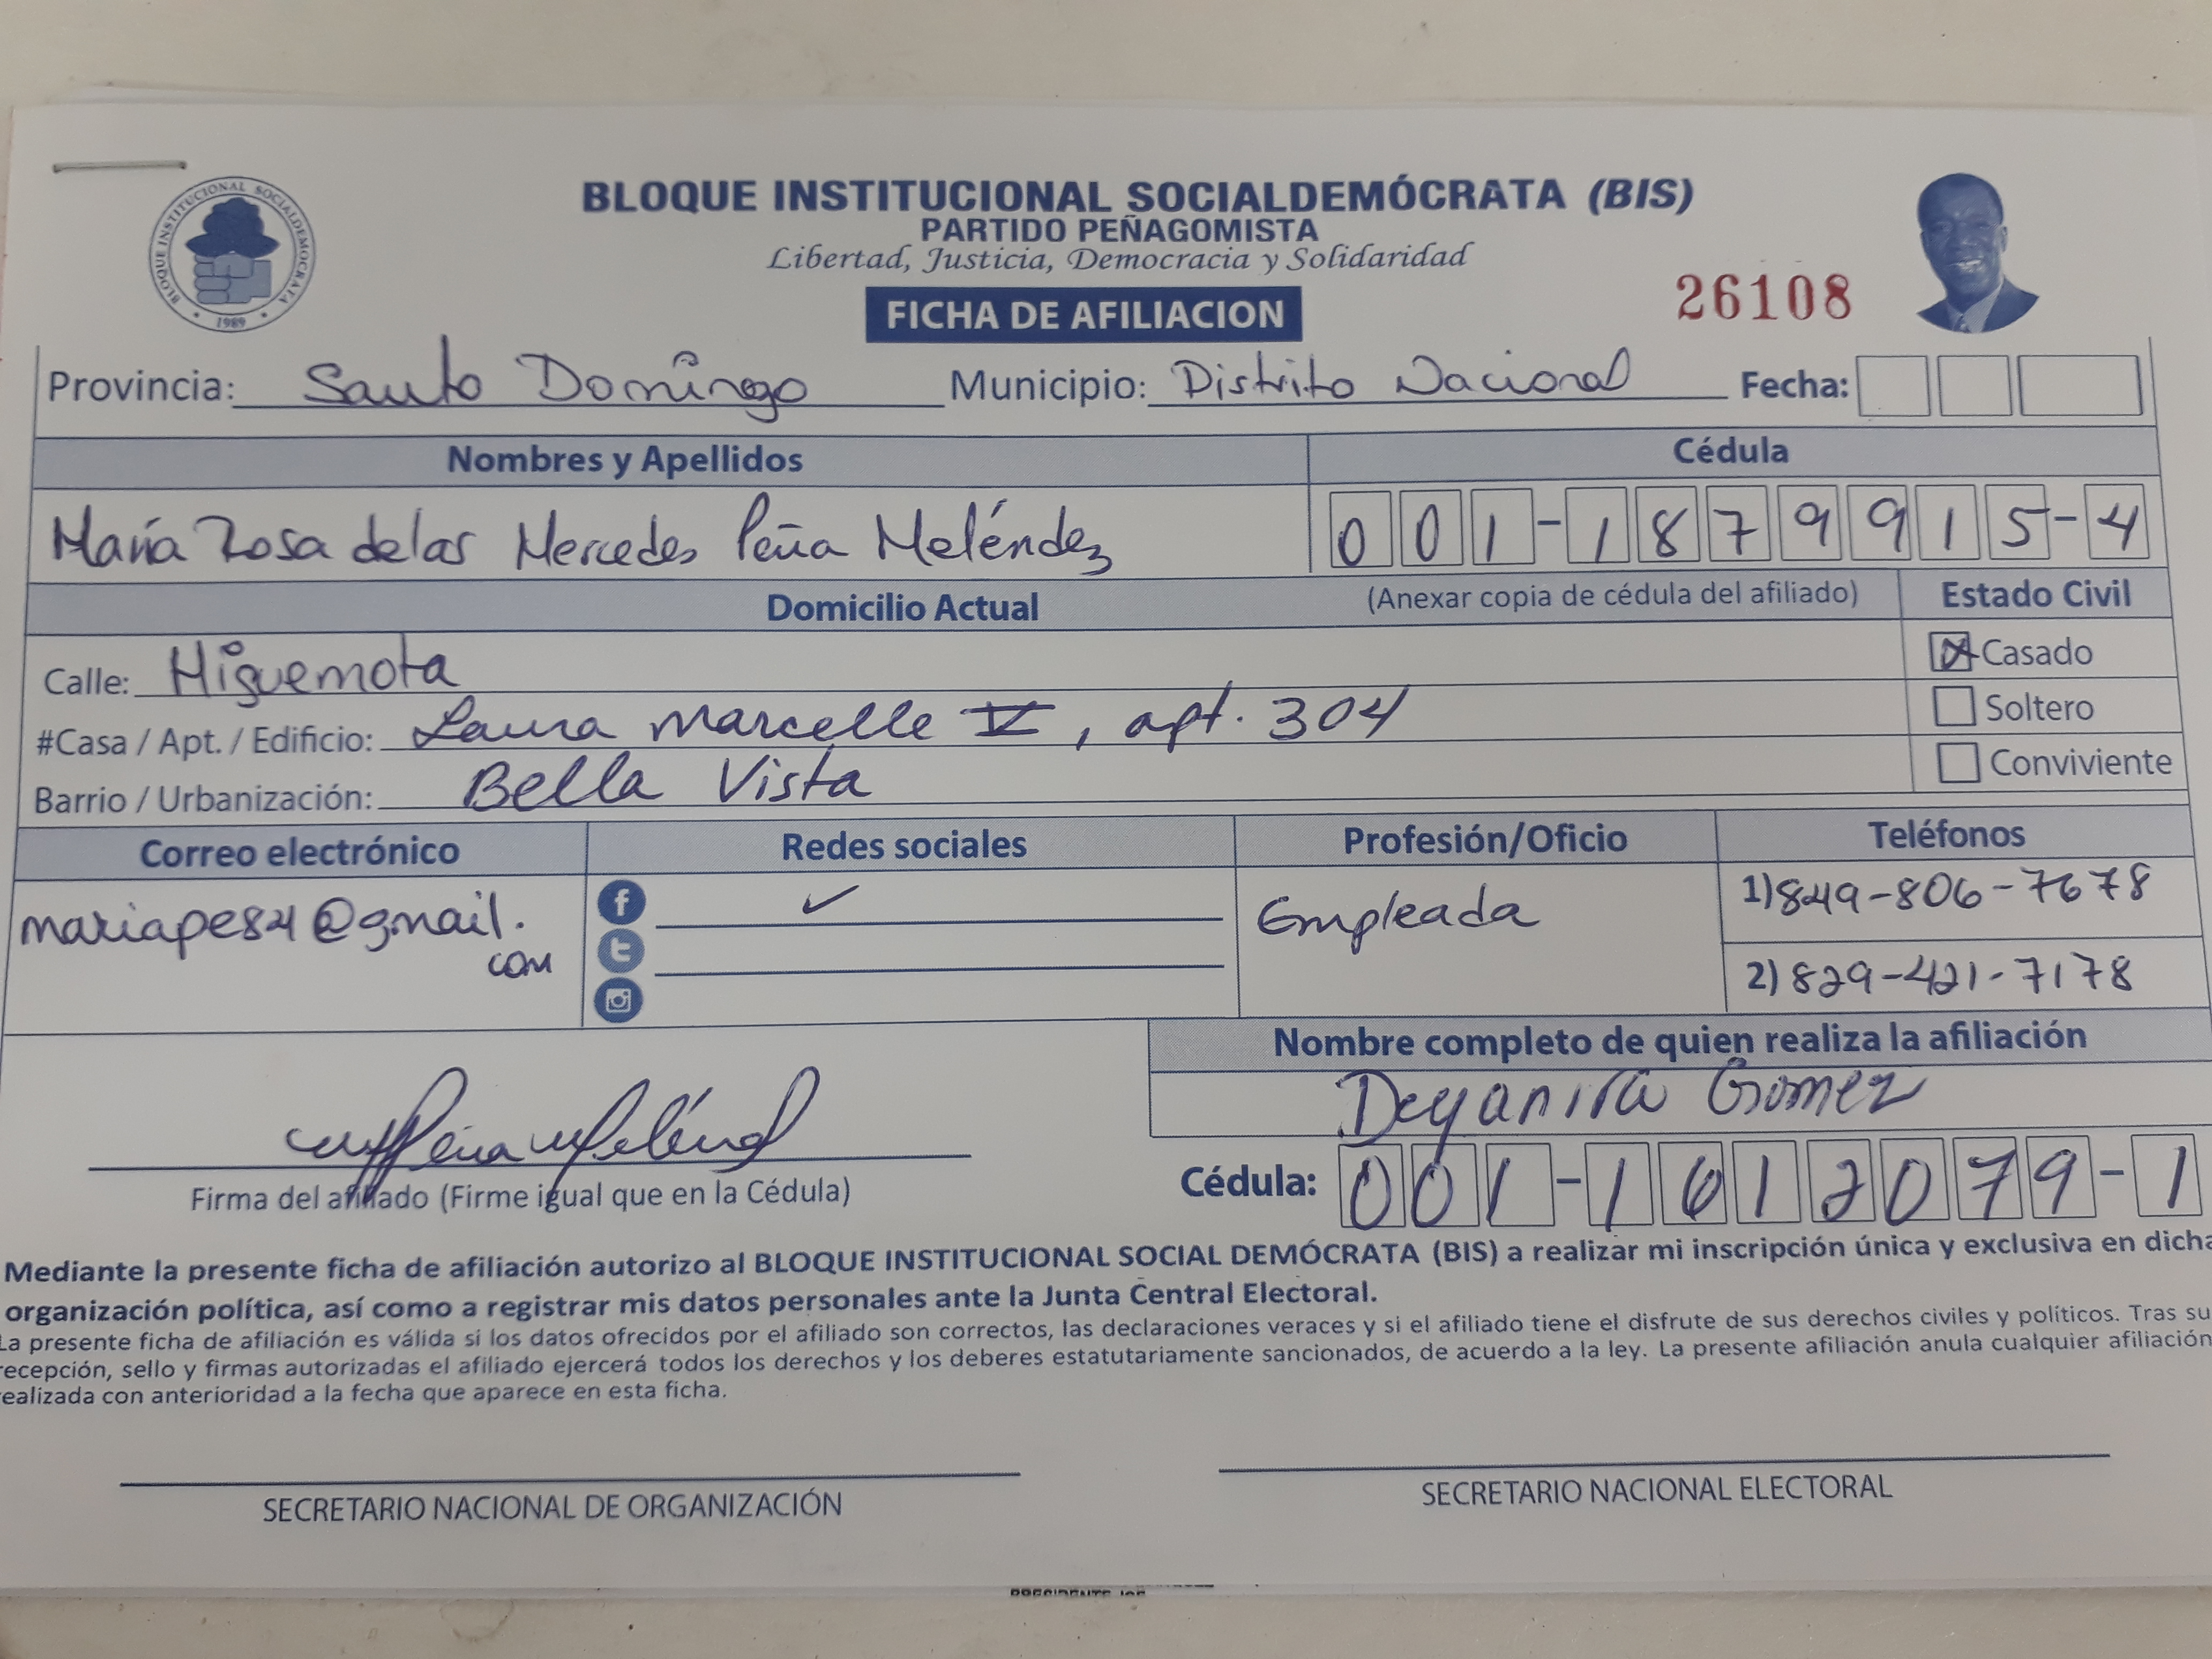 BLOQUE INSTITUCIONAL SOCIALDEMOCRATA
1989
BLOQUE INSTITUCIONAL SOCIALDEMÓCRATA (BIS)
PARTIDO PEÑAGOMISTA
Libertad, Justicia, Democracia y Solidaridad
FICHA DE AFILIACION
26108
Provincia: Santo Domingo Municipio: Distrito Nacional Fecha:
Nombres y Apellidos Cédula
María Rosa de las Mercedes Peña Meléndez 001-1879915-4
Domicilio Actual (Anexar copia de cédula del afiliado) Estado Civil
Calle: Higuemota Casado
#Casa / Apt. / Edificio: Laura Marcelle V, apt. 304 Soltero
Barrio / Urbanización: Bella Vista Conviviente
Correo electrónico Redes sociales Profesión/Oficio Teléfonos
mariape84@gmail. Empleada 1) 849-806-7678
com 2) 829-421-7178
Nombre completo de quien realiza la afiliación
Deyanira Gomez
Peña Meléndez
Firma del afiliado (Firme igual que en la Cédula) Cédula: 001-1612079-1
Mediante la presente ficha de afiliación autorizo al BLOQUE INSTITUCIONAL SOCIAL DEMÓCRATA (BIS) a realizar mi inscripción única y exclusiva en dicha
organización política, así como a registrar mis datos personales ante la Junta Central Electoral.
La presente ficha de afiliación es válida si los datos ofrecidos por el afiliado son correctos, las declaraciones veraces y si el afiliado tiene el disfrute de sus derechos civiles y políticos. Tras su
recepción, sello y firmas autorizadas el afiliado ejercerá todos los derechos y los deberes estatutariamente sancionados, de acuerdo a la ley. La presente afiliación anula cualquier afiliación
realizada con anterioridad a la fecha que aparece en esta ficha.
SECRETARIO NACIONAL DE ORGANIZACIÓN SECRETARIO NACIONAL ELECTORAL